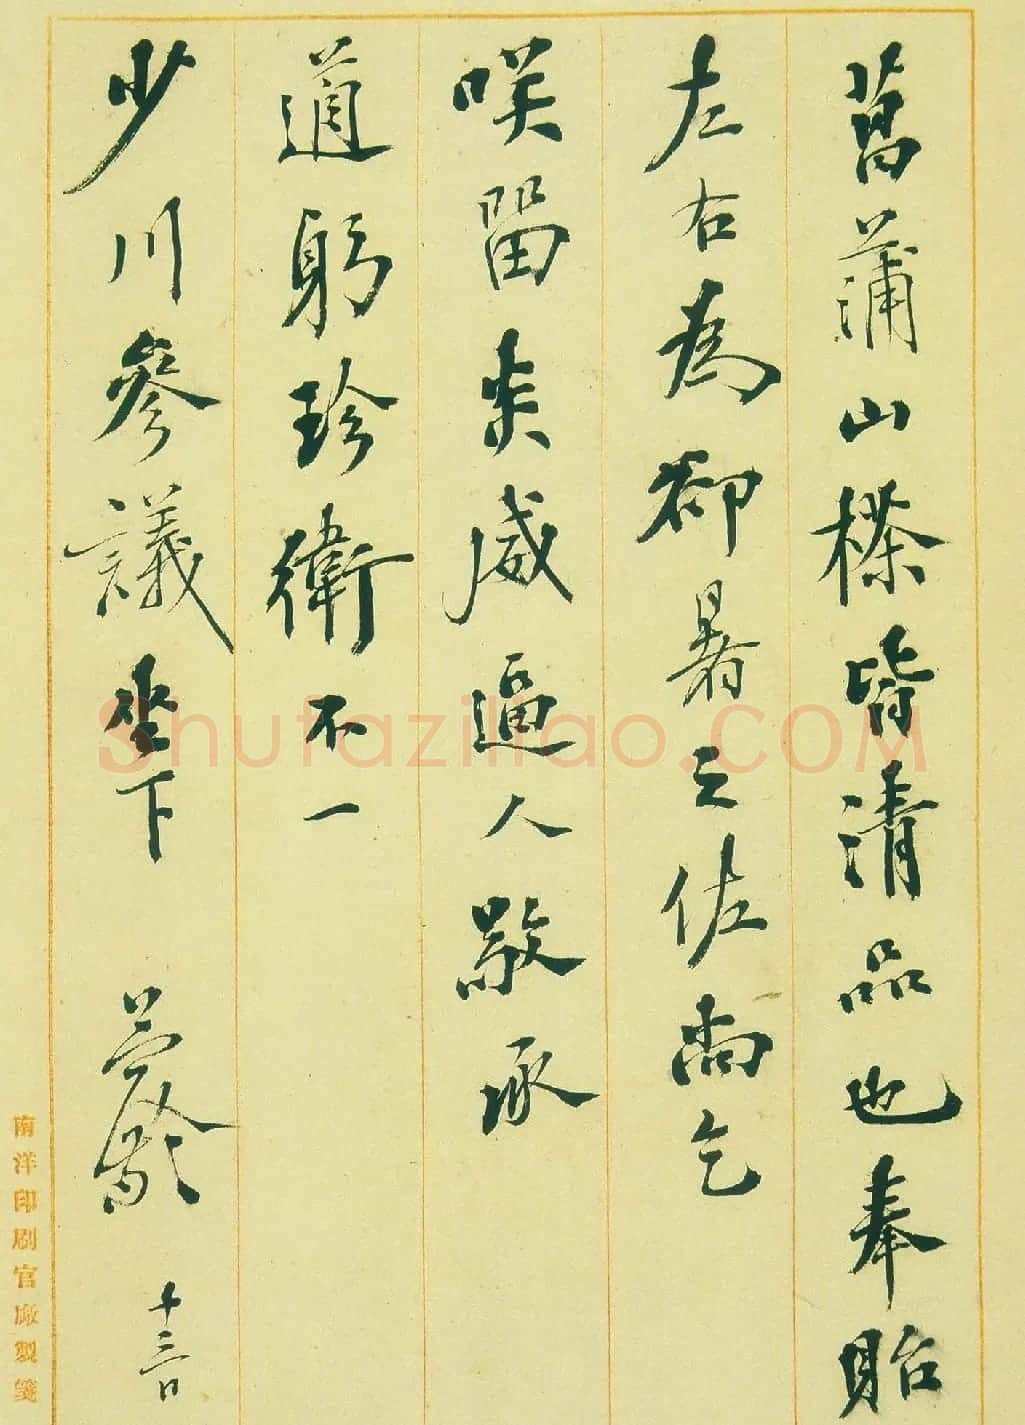 菖蒲山皆清品也奉貽
左右為卻暑之佐尚乞
咲留炎威逼人敬承
適躬珍衛不一
少川參議坐下 十三日
南洋印刷官廠製箋
Shufaziliao.COM